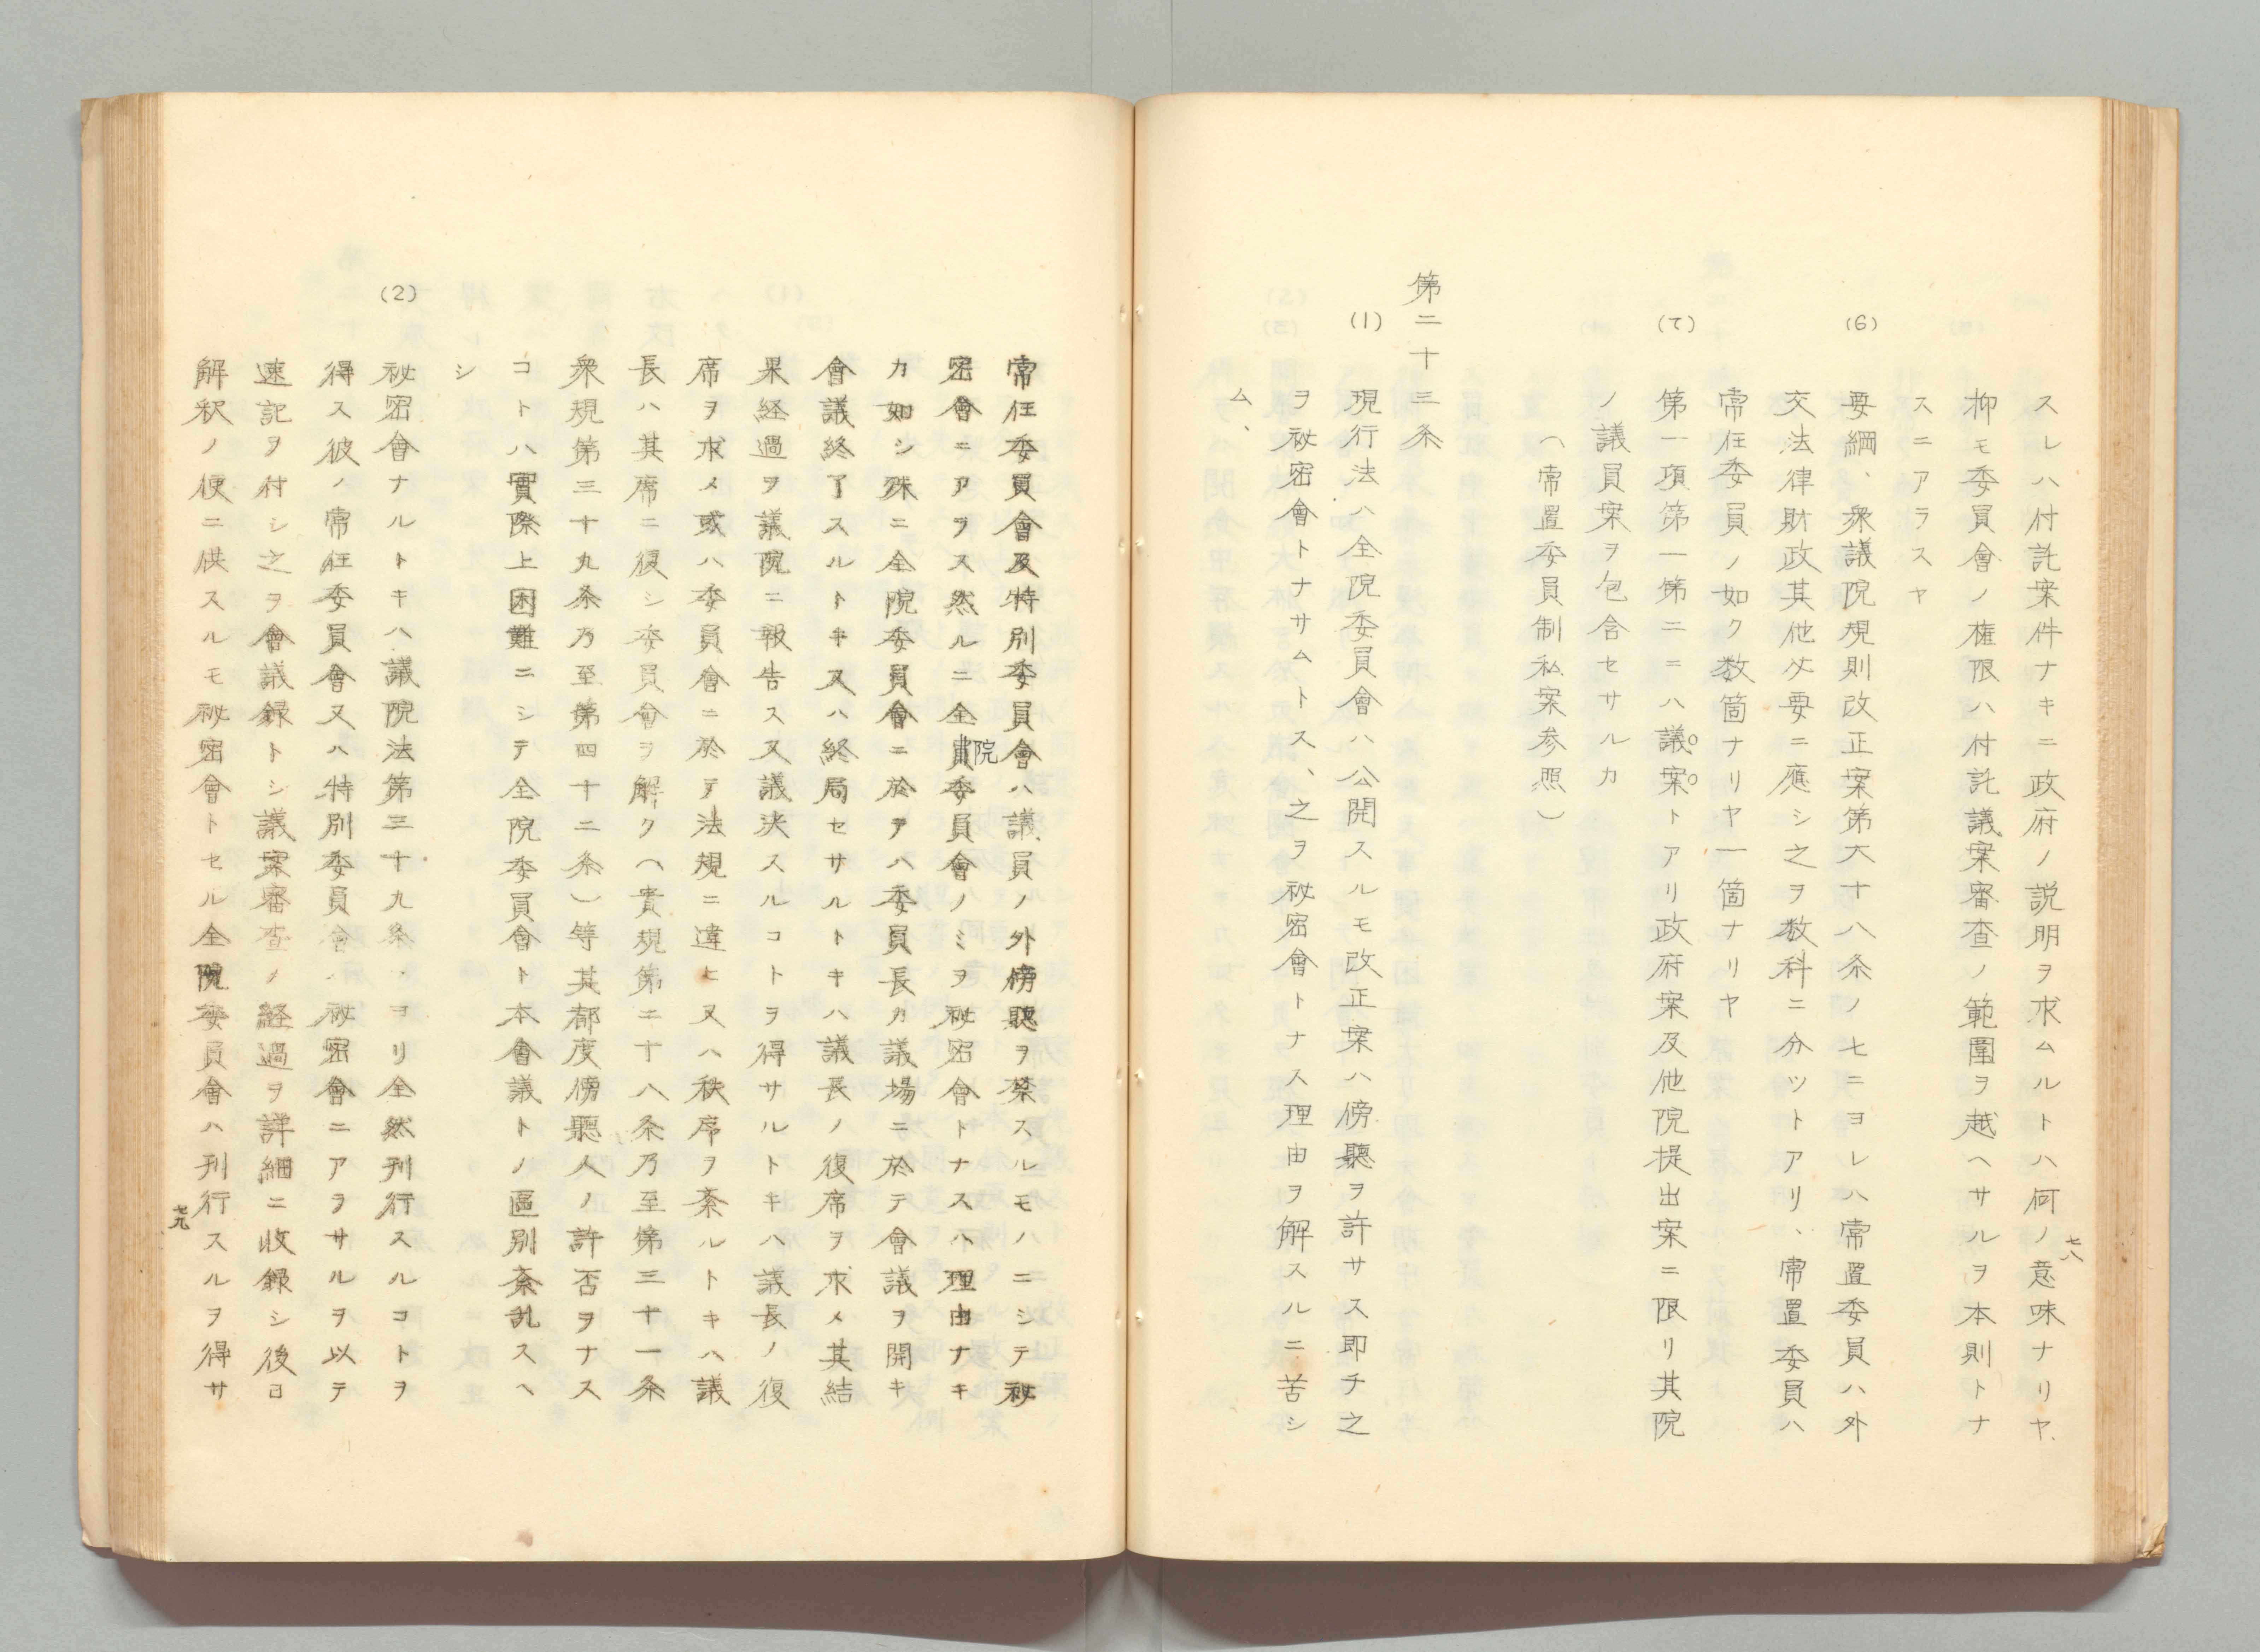 スレハ付託案件ナキニ政府ノ説明ヲ求ムルトハ何ノ意味ナリヤ、
抑モ委員會ノ権限ハ付託議案審査ノ範圍ヲ越ヘサルヲ本則トナ
スニアラスヤ
(6) 要綱、衆議院規則改正案第六十八条ノ七ニヨレハ常置委員ハ外
交法律財政其他必要ニ應シ之ヲ数科ニ分ツトアリ、常置委員ハ
常任委員ノ如ク数箇ナリヤ一箇ナリヤ
(7) 第一項第一第二ニハ議案トアリ政府案及他院提出案ニ限リ其院
ノ議員案ヲ包含セサルカ
(常置委員制私案参照)
第二十三条
(1) 現行法ハ全院委員會ハ公開スルモ改正案ハ傍聽ヲ許サス即チ之
ヲ祕密會トナサムトス、之ヲ祕密會トナス理由ヲ解スルニ苦シ
ム、
七八
常任委員會及特別委員會ハ議員ノ外傍聽ヲ禁スルモノニシテ祕
密會ニアラス然ルニ全院委員會ノミヲ祕密會トナスハ理由ナキ
カ如シ殊ニ全院委員會ニ於テハ委員長カ議場ニ於テ會議ヲ開キ
會議終了スルトキ又ハ終局セサルトキハ議長ノ復席ヲ求メ其結
果経過ヲ議院ニ報告ス又議決スルコトヲ得サルトキハ議長ノ復
席ヲ求メ或ハ委員會ニ於テ法規ニ違ヒ又ハ秩序ヲ紊ルトキハ議
長ハ其席ニ復シ委員會ヲ解ク(貴規第二十八条乃至第三十一条
衆規第三十九条乃至第四十二条)等其都度傍聽人ノ許否ヲナス
コトハ實際上困難ニシテ全院委員會ト本會議トノ區別紊乱スヘ
シ
(2) 祕密會ナルトキハ議院法第三十九条ニヨリ全然刊行スルコトヲ
得ス彼ノ常任委員會又ハ特別委員會ノ祕密會ニアラサルヲ以テ
速記ヲ付シ之ヲ會議録トシ議案審査ノ経過ヲ詳細ニ收録シ後日
解釈ノ便ニ供スルモ祕密會トセル全院委員會ハ刊行スルヲ得サ
七九